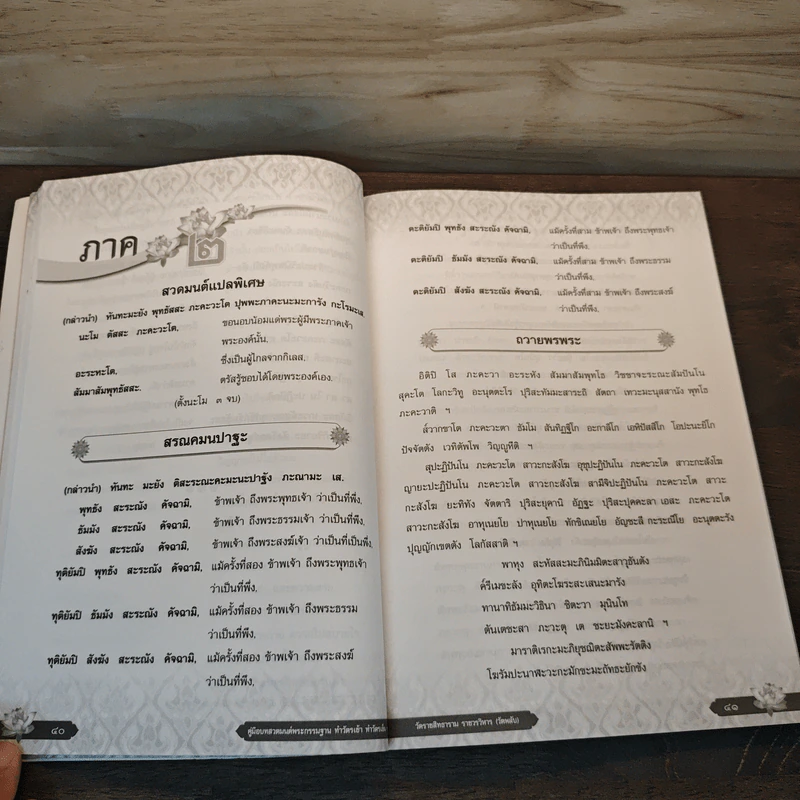 ภาค ๒
สวดมนต์แปลพิเศษ
(กล่าวนำ) หันทะมะยัง พุทธัสสะ ภะคะวะโต ปุพพะภาคะนะมะการัง กะโรมะเส.
นะโม ตัสสะ ภะคะวะโต, ขอนอบน้อมแด่พระผู้มีพระภาคเจ้า
พระองค์นั้น,
อะระหะโต, ซึ่งเป็นผู้ไกลจากกิเลส,
สัมมาสัมพุทธัสสะ. ตรัสรู้ชอบได้โดยพระองค์เอง.
(ตั้งนะโม ๓ จบ)
สรณคมนปาฐะ
(กล่าวนำ) หันทะ มะยัง ติสะระณะคะมะนะปาฐัง ภะณามะ เส.
พุทธัง สะระณัง คัจฉามิ, ข้าพเจ้า ถึงพระพุทธเจ้า ว่าเป็นที่พึ่ง,
ธัมมัง สะระณัง คัจฉามิ, ข้าพเจ้า ถึงพระธรรมเจ้า ว่าเป็นที่พึ่ง,
สังฆัง สะระณัง คัจฉามิ, ข้าพเจ้า ถึงพระสงฆ์เจ้า ว่าเป็นที่เป็นที่พึ่ง,
ทุติยัมปิ พุทธัง สะระณัง คัจฉามิ, แม้ครั้งที่สอง ข้าพเจ้า ถึงพระพุทธเจ้า
ว่าเป็นที่พึ่ง,
ทุติยัมปิ ธัมมัง สะระณัง คัจฉามิ, แม้ครั้งที่สอง ข้าพเจ้า ถึงพระธรรม
ว่าเป็นที่พึ่ง,
ทุติยัมปิ สังฆัง สะระณัง คัจฉามิ, แม้ครั้งที่สอง ข้าพเจ้า ถึงพระสงฆ์
ว่าเป็นที่พึ่ง,
๔๐
คู่มือบทสวดมนต์พระกรรมฐาน ทำวัตรเช้า ทำวัตรเย็น
ตะติยัมปิ พุทธัง สะระณัง คัจฉามิ, แม้ครั้งที่สาม ข้าพเจ้า ถึงพระพุทธเจ้า
ว่าเป็นที่พึ่ง,
ตะติยัมปิ ธัมมัง สะระณัง คัจฉามิ, แม้ครั้งที่สาม ข้าพเจ้า ถึงพระธรรม
ว่าเป็นที่พึ่ง,
ตะติยัมปิ สังฆัง สะระณัง คัจฉามิ, แม้ครั้งที่สาม ข้าพเจ้า ถึงพระสงฆ์
ว่าเป็นที่พึ่ง,
ถวายพรพระ
อิติปิ โส ภะคะวา อะระหัง สัมมาสัมพุทโธ วิชชาจะระณะสัมปันโน
สุคะโต โลกะวิทู อะนุตตะโร ปุริสะทัมมะสาระถิ สัตถา เทวะมะนุสสานัง พุทโธ
ภะคะวาติ ฯ
ส๎วากขาโต ภะคะวะตา ธัมโม สันทิฏฐิโก อะกาลิโก เอหิปัสสิโก โอปะนะยิโก
ปัจจัตตัง เวทิตัพโพ วิญญูหีติ ฯ
สุปะฏิปันโน ภะคะวะโต สาวะกะสังโฆ อุชุปะฏิปันโน ภะคะวะโต สาวะกะสังโฆ
ญายะปะฏิปันโน ภะคะวะโต สาวะกะสังโฆ สามีจิปะฏิปันโน ภะคะวะโต สาวะ
กะสังโฆ ยะทิทัง จัตตาริ ปุริสะยุคานิ อัฏฐะ ปุริสะปุคคะลา เอสะ ภะคะวะโต
สาวะกะสังโฆ อาหุเนยโย ปาหุเนยโย ทักขิเณยโย อัญชะลี กะระณีโย อะนุตตะรัง
ปุญญักเขตตัง โลกัสสาติ ฯ
พาหุง สะหัสสะมะภินิมมิตะสาวุธันตัง
ค๎รีเมขะลัง อุทิตะโฆระสะเสนะมารัง
ทานาทิธัมมะวิธินา ชิตะวา มุนินโท
ตันเตชะสา ภะวะตุ เต ชะยะมังคะลานิ ฯ
มาราติเรกะมะภิยุชฌิตะสัพพะรัตติง
โฆรัมปะนาฬะวะกะมักขะมะถัทธะยักขัง
วัดราชสิทธาราม ราชวรวิหาร (วัดพลับ)
๔๑